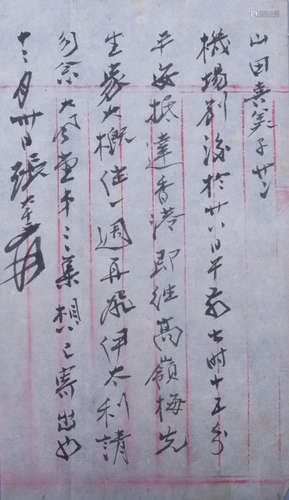 山田喜美子廿二
機場別後於廿八日平前七時十五分
平安抵達香港即往高嶺梅先
生家大概住一週再飛伊太利請
勿念大風堂第三集想已寄出也
十二月卅日張大千爰